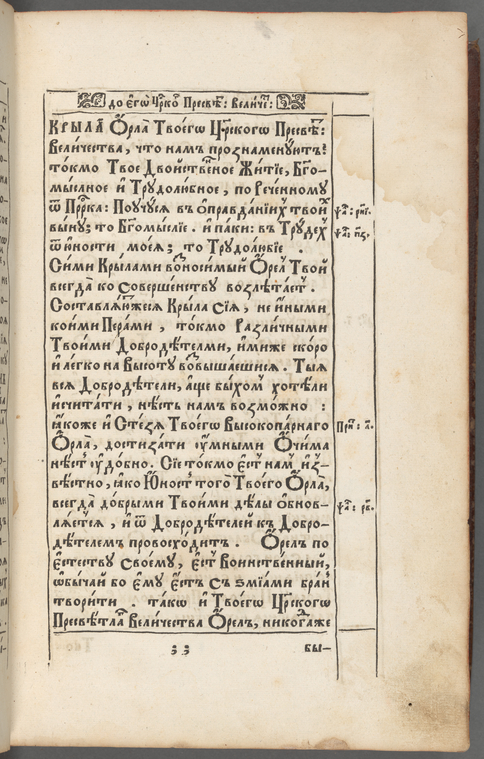 до є҆гѡ̀ Црⷭ҇коⷢ҇ Пресвѣ: Величеⷭ҇:
КРЫЛА̀ Ѻ҆рла̀ Твоегѡ̀ Црⷭ҇когѡ Пресвѣⷮ:
Величества, что намъ прознаменꙋ́ютъ:
то́кмо Твое Двойствеⷩ҇ное Жи́тїе, Бг҃о-
мыслное и҆ Трꙋдолю́бное, по Реченномꙋ
ѿ Прⷪ҇рка: Поꙋчꙋ́сѧ въ ѡ҆правда́нїиⷯ твоиⷯ
вы́нꙋ; то Бг҃омы́слїе. и҆ паки: въ Трꙋдеⷯ
ѿ ю҆́ности моеѧ̀; то Трꙋдолю́бїе .
Си́ми Крыла́ми воⷥноси́мый Ѻ҆ре́лъ Твой
всегда̀ ко Соверше́нствꙋ возлѣта́етъ .
Составлѧ́ющесѧ Крыла̀ Сїѧ̀, не и҆ны́ми
кои́ми Пера́ми , то́кмо Разли́чными
Твои́ми Добродѣ́телми, и҆́миже ско́ро
и҆ ле́гко на Высотꙋ̀ воⷥвыша́ешисѧ . Тыѧ̀
всѧ̀ Добродѣ́тели, а҆́ще бы́хомъ хотѣ́ли
и҆счита́ти , нѣ́сть намъ возмо́жно :
ꙗ҆́коже и҆ Стезѧ̀ Твоегѡ̀ Высокопа́рнаго
Ѻ҆рла̀, достиза́ти ᲂу҆́мными Ѻ҆чи́ма
нѣ́сть ᲂу҆до́бно. Сїѐ то́кмо є҆́сть намъ и҆з-
вѣ́стно, ꙗ҆́ко Ю҆́ность тогѡ̀ Твоегѡ̀ Ѻ҆рла̀,
всегда̀ до́брыми Твои́ми дѣ́лы ѡ҆бнов-
лѧ́етсѧ , и҆ ѿ Добродѣ́телей къ Добро-
дѣ́телемъ провосхо́дитъ . Ѻ҆ре́лъ по
є҆стествꙋ̀ своемꙋ̀, є҆́сть Воинстве́нный,
ѡ҆бы́чай бо є҆мꙋ̀ є҆́сть съ ѕмїа́ми бра́нь
твори́ти . та́кѡ и҆ Твоегѡ̀ Црⷭ҇когѡ
Пресвѣ́тлаⷢ҇ Вели́чества Ѻ҆ре́лъ, никогда́же
бы-
ѱаⷧ: рн҃і.
ѱаⷧ: п҃з.
ѱаⷧ: р҃в.